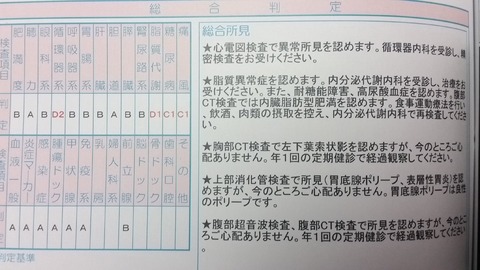 総合判定
検査項目
肥満度
聴力
眼科系
循環器系
呼吸器系
胃腸系
肝臓
胆道
腎尿路系
脂質代謝
糖尿病
痛風
判定
B A B D2 B B B A B B D1 C1 C1
血液一般
感染症
甲状腺
免疫系
婦人科系
前立腺
脳ドック
肺ドック
歯科口腔
その他
B
判定基準
総合所見
★心電図検査で異常所見を認めます。循環器内科を受診し、精
密検査をお受けください。
★脂質異常症を認めます。内分泌代謝内科を受診し、治療をお
受けください。また、耐糖能障害、高尿酸血症を認めます。腹部
CT検査では内臓脂肪型肥満を認めます。食事運動療法を行い
、飲酒、肉類の摂取を控え、内分泌代謝内科で再検査してくだ
さい。
★胸部CT検査で左下葉索状影を認めますが、今のところご心
配ありません。年1回の定期健診で経過観察してください。
★上部消化管検査で所見(胃底腺ポリープ、表層性胃炎)を認
めますが、今のところご心配ありません。胃底腺ポリープは良性
のポリープです。
★腹部超音波検査、腹部CT検査で所見を認めますが、今のと
ころご心配ありません。年1回の定期健診で経過観察してくださ
い。